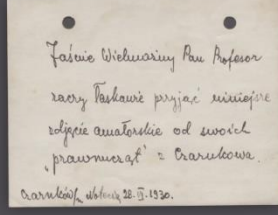 Jaśnie Wielmożny Pan Profesor
raczy łaskawie przyjąć niniejsze
zdjęcie amatorskie od swoich
„prawnucząt" z Czarnkowa.
Czarnków n/Notecią 28.IX.1930.